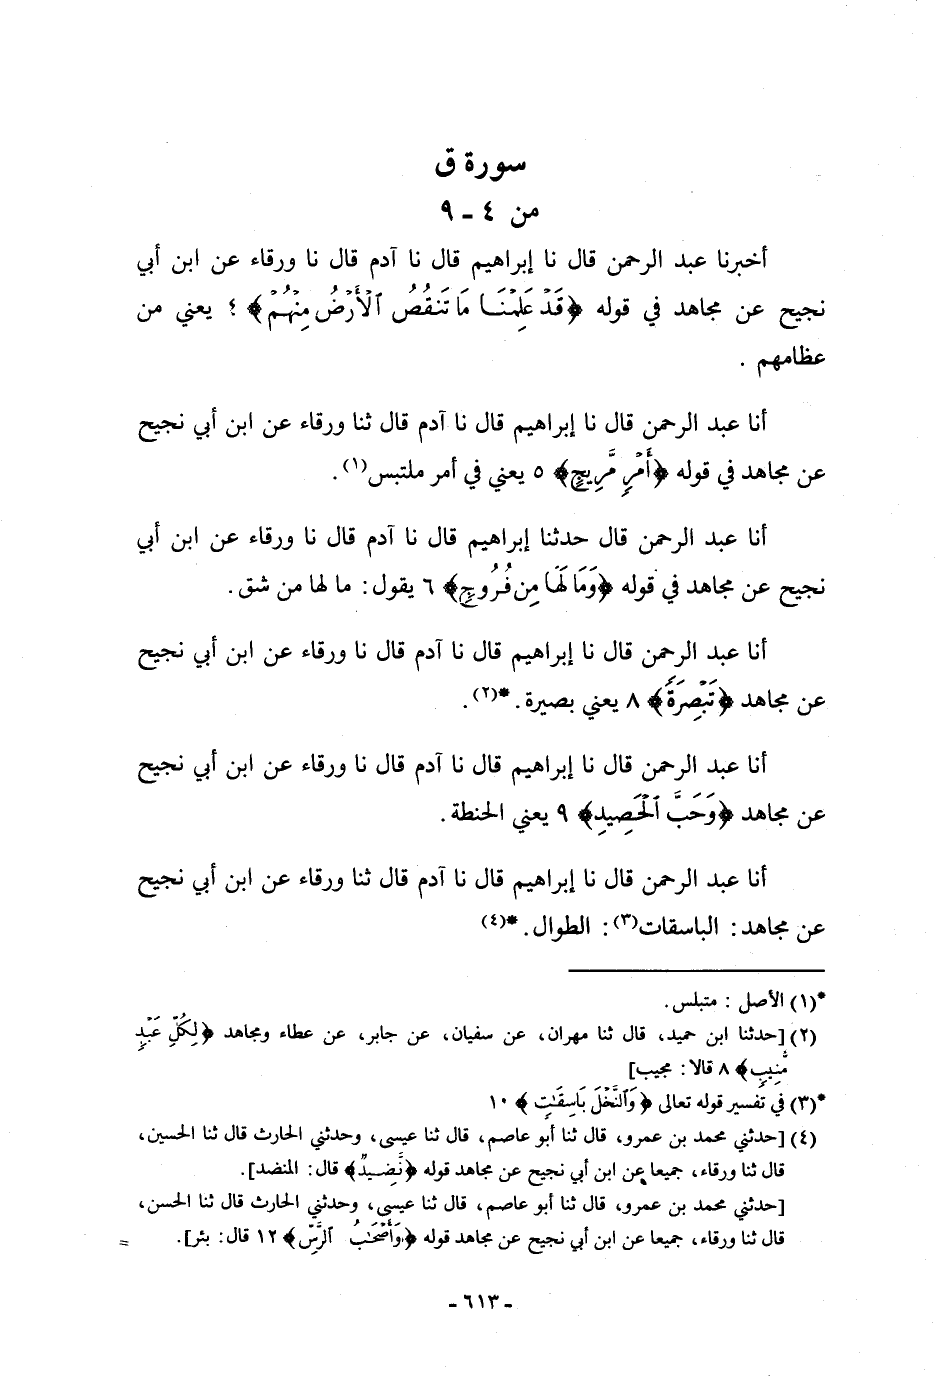 سورة ق
من ٤ - ٩
أخبرنا عبد الرحمن قال نا إبراهيم قال نا آدم قال نا ورقاء عن ابن أبي
نجيح عن مجاهد في قوله ﴿قَدْ عَلِمْنَا مَا تَنقُصُ ٱلْأَرْضُ مِنْهُمْ﴾ ٤ يعني من
عظامهم .
أنا عبد الرحمن قال نا إبراهيم قال نا آدم قال ثنا ورقاء عن ابن أبي نجيح
عن مجاهد في قوله ﴿أَمْرٍ مَّرِيجٍ﴾ ٥ يعني في أمر ملتبس(١).
أنا عبد الرحمن قال حدثنا إبراهيم قال نا آدم قال نا ورقاء عن ابن أبي
نجيح عن مجاهد في قوله ﴿وَمَا لَهَا مِن فُرُوجٍ﴾ ٦ يقول: ما لها من شق.
أنا عبد الرحمن قال نا إبراهيم قال نا آدم قال نا ورقاء عن ابن أبي نجيح
عن مجاهد ﴿تَبْصِرَةً﴾ ٨ يعني بصيرة. *(٢).
أنا عبد الرحمن قال نا إبراهيم قال نا آدم قال نا ورقاء عن ابن أبي نجيح
عن مجاهد ﴿وَحَبَّ ٱلْحَصِيدِ﴾ ٩ يعني الحنطة.
أنا عبد الرحمن قال نا إبراهيم قال نا آدم قال ثنا ورقاء عن ابن أبي نجيح
عن مجاهد: الباسقات(٣): الطوال. *(٤)
*(١) الأصل : متبلس.
(٢) [حدثنا ابن حميد، قال ثنا مهران، عن سفيان، عن جابر، عن عطاء ومجاهد ﴿لِكُلِّ عَبْدٍ
مُّنِيبٍ﴾ ٨ قالا: مجيب]
*(٣) في تفسير قوله تعالى ﴿وَٱلنَّخْلَ بَاسِقَٰتٍ﴾ ١٠
(٤) [حدثني محمد بن عمرو، قال ثنا أبو عاصم، قال ثنا عيسى، وحدثني الحارث قال ثنا الحسين،
قال ثنا ورقاء، جميعا عن ابن أبي نجيح عن مجاهد قوله ﴿نَّضِيدٌ﴾ قال: المنضد].
[حدثني محمد بن عمرو، قال ثنا أبو عاصم، قال ثنا عيسى، وحدثني الحارث قال ثنا الحسن،
قال ثنا ورقاء، جميعا عن ابن أبي نجيح عن مجاهد قوله ﴿وَأَصْحَٰبُ ٱلرَّسِّ﴾ ١٢ قال: بئر]. =
- ٦١٣ -